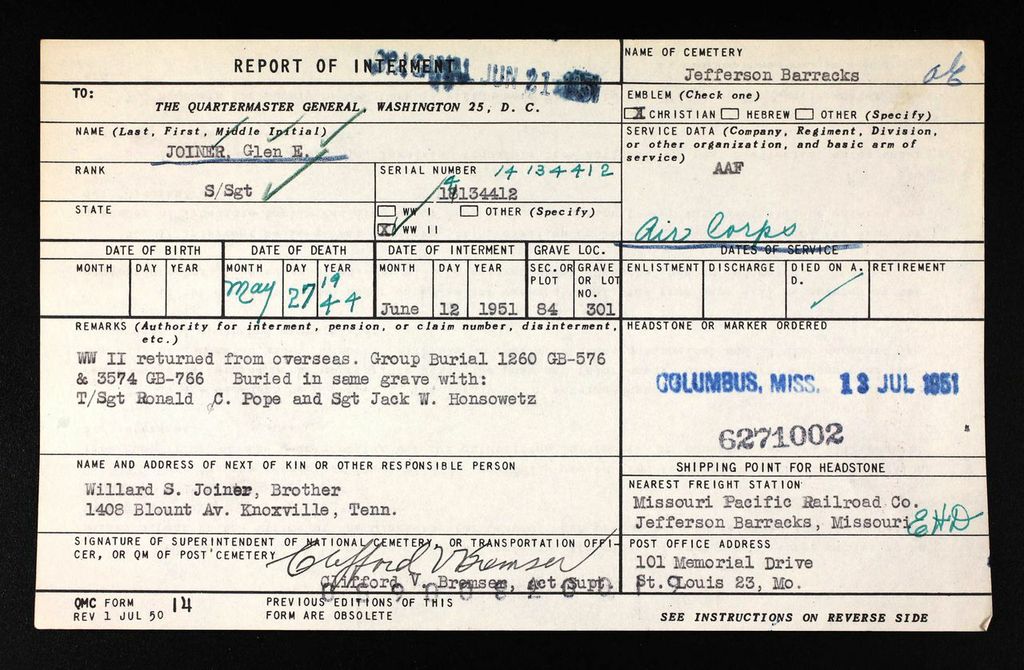 REPORT OF INTERMENT
ORIGINAL JUN 21 1951
TO:
THE QUARTERMASTER GENERAL, WASHINGTON 25, D. C.
NAME OF CEMETERY
Jefferson Barracks
EMBLEM (Check one)
X CHRISTIAN HEBREW OTHER (Specify)
NAME (Last, First, Middle Initial)
JOINER, Glen E.
SERVICE DATA (Company, Regiment, Division,
or other organization, and basic arm of
service)
AAF
Air Corps
RANK
S/Sgt
SERIAL NUMBER 14134412
18134412
4
STATE
WW I OTHER (Specify)
X WW II
DATE OF BIRTH DATE OF DEATH DATE OF INTERMENT GRAVE LOC. DATES OF SERVICE
MONTH DAY YEAR MONTH DAY YEAR MONTH DAY YEAR SEC. OR PLOT GRAVE OR LOT NO. ENLISTMENT DISCHARGE DIED ON A. D. RETIREMENT
May 27 1944 June 12 1951 84 301
REMARKS (Authority for interment, pension, or claim number, disinterment,
etc.)
WW II returned from overseas. Group Burial 1260 GB-576
& 3574 GB-766 Buried in same grave with:
T/Sgt Ronald C. Pope and Sgt Jack W. Honsowetz
HEADSTONE OR MARKER ORDERED
COLUMBUS, MISS. 13 JUL 1951
6271002
SHIPPING POINT FOR HEADSTONE
NAME AND ADDRESS OF NEXT OF KIN OR OTHER RESPONSIBLE PERSON
Willard S. Joiner, Brother
1408 Blount Av. Knoxville, Tenn.
NEAREST FREIGHT STATION
Missouri Pacific Railroad Co.
Jefferson Barracks, Missouri
EHD
SIGNATURE OF SUPERINTENDENT OF NATIONAL CEMETERY, OR TRANSPORTATION OFFI-
CER, OR QM OF POST CEMETERY
Clifford V Bremser
Clifford V. Bremser, Act Supt
POST OFFICE ADDRESS
101 Memorial Drive
St. Louis 23, Mo.
QMC FORM 14
REV 1 JUL 50
PREVIOUS EDITIONS OF THIS
FORM ARE OBSOLETE
SEE INSTRUCTIONS ON REVERSE SIDE